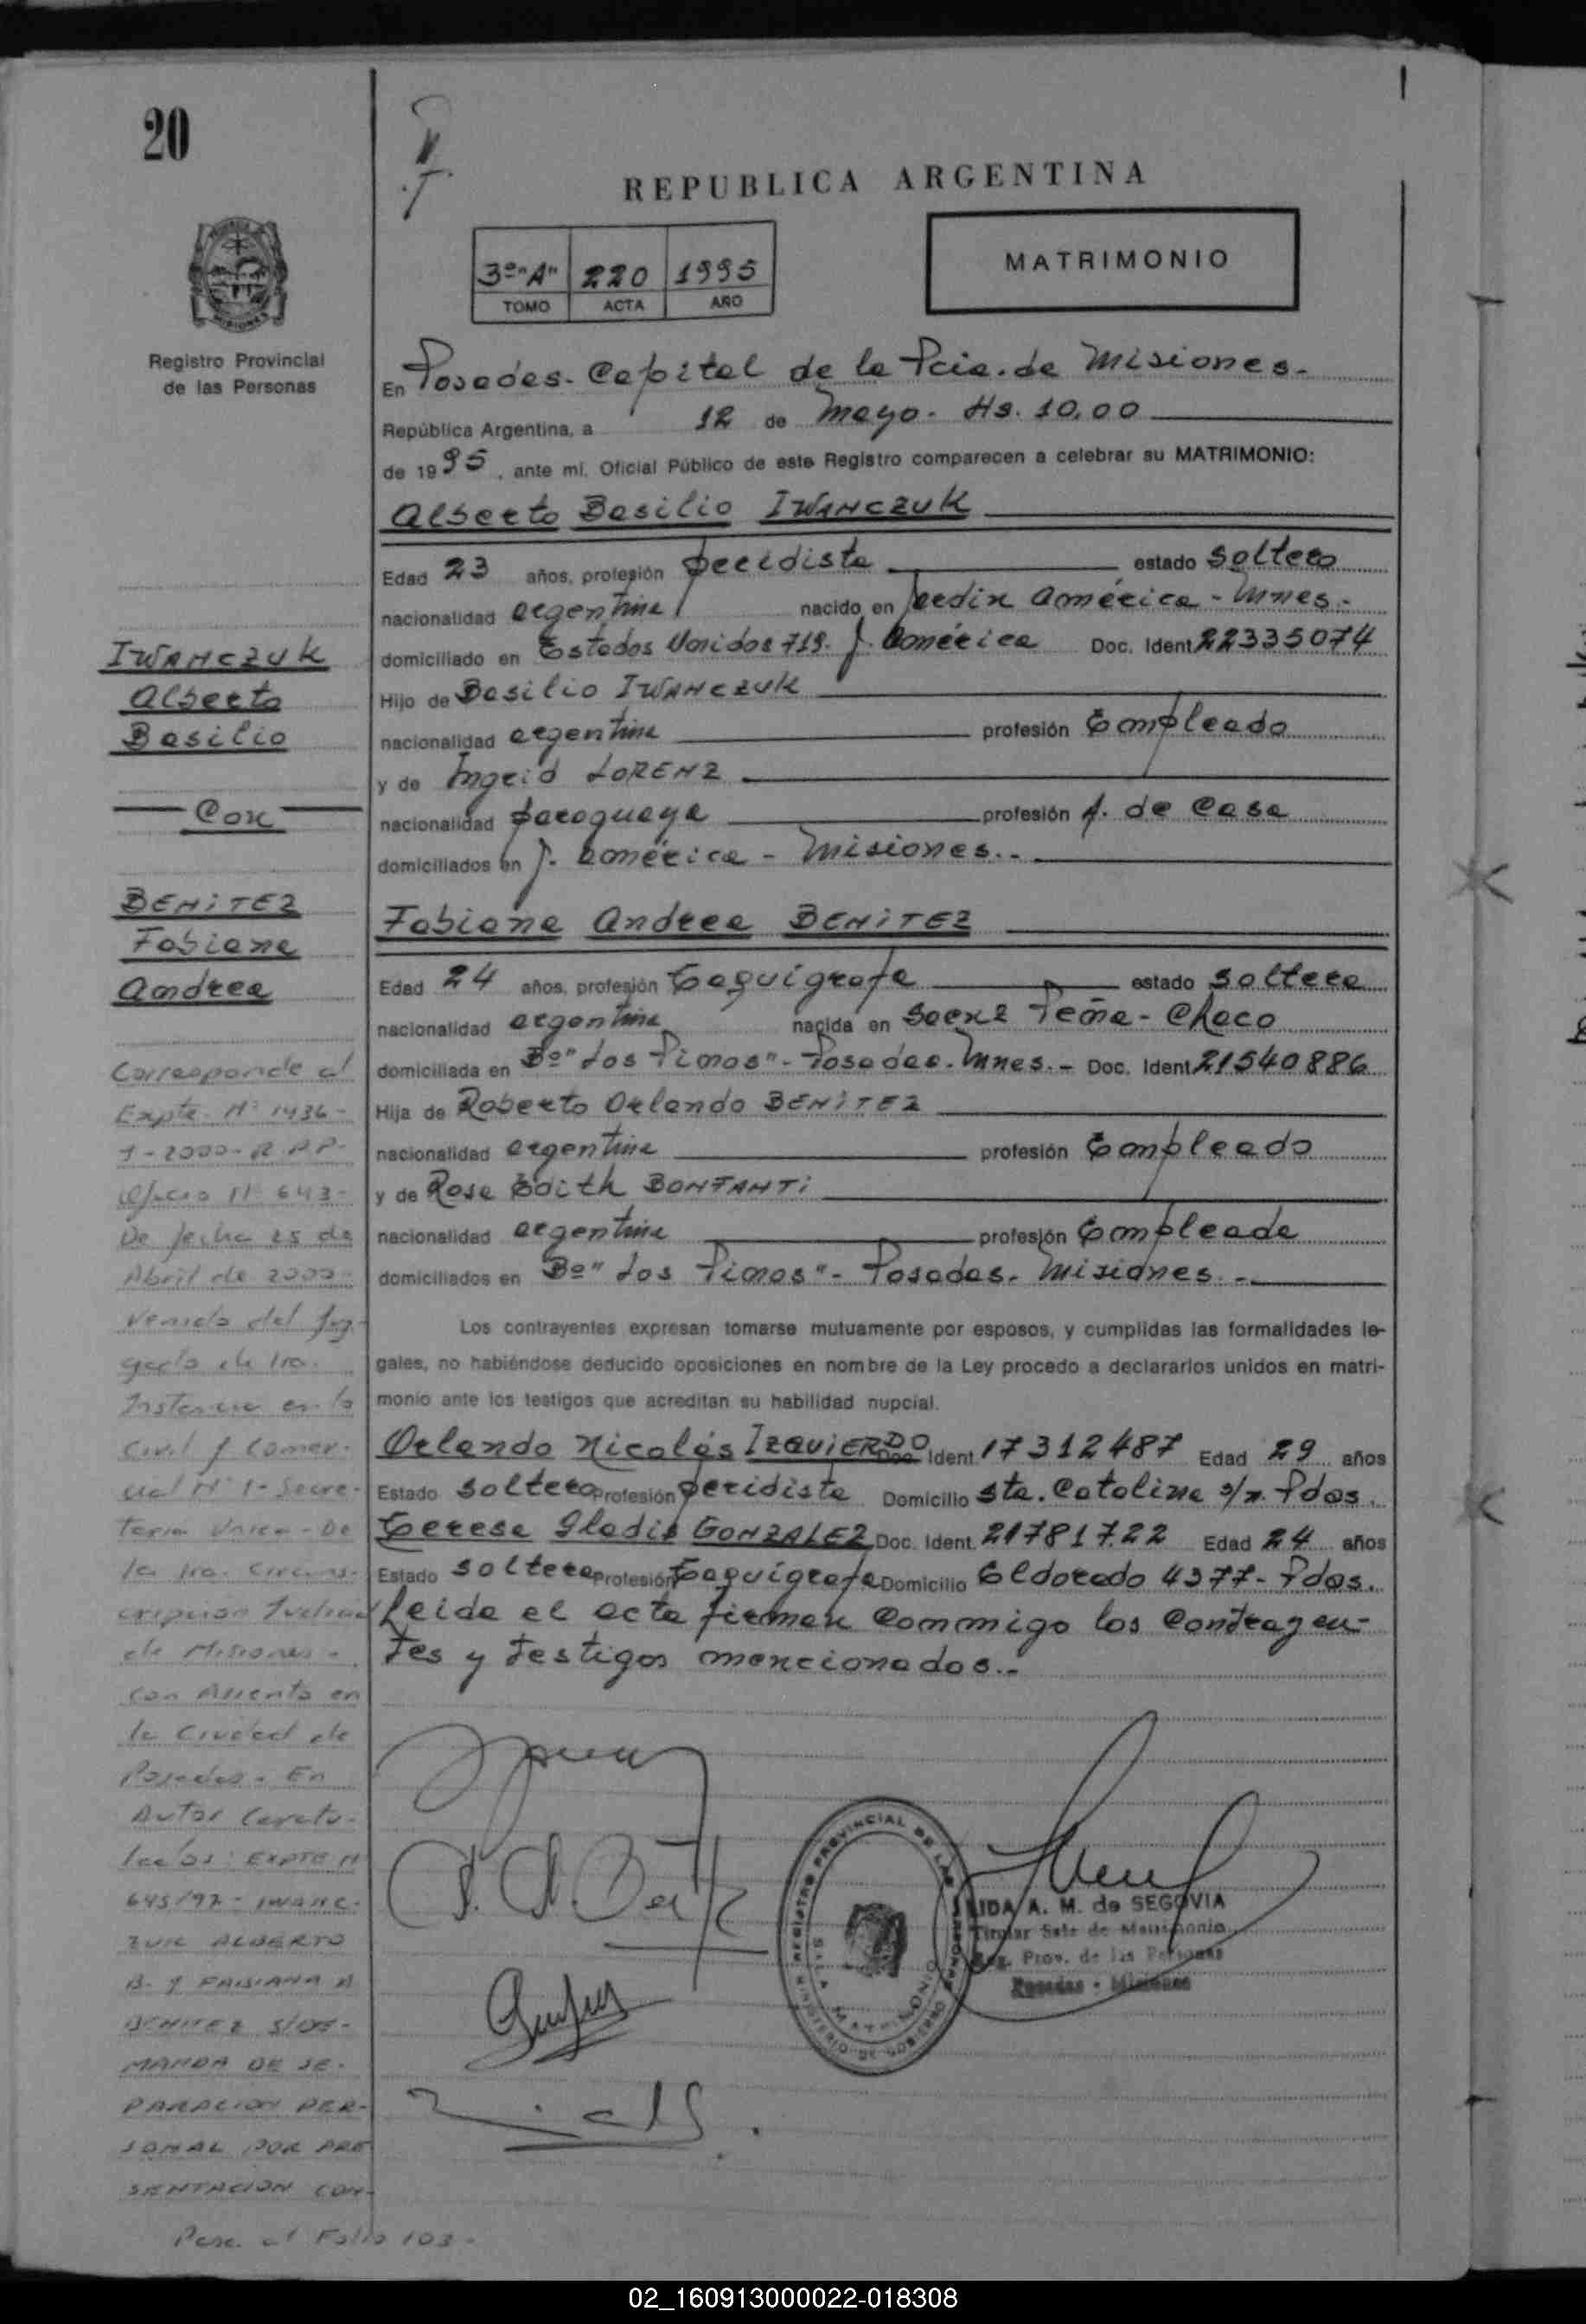 20
REPUBLICA ARGENTINA
3º "A" 220 1995
TOMO ACTA AÑO
MATRIMONIO
Registro Provincial
de las Personas
En Posadas. Capital de la Pcia. de Misiones.-
República Argentina, a 12 de Mayo. Hs. 10,00
de 1995, ante mí, Oficial Público de este Registro comparecen a celebrar su MATRIMONIO:
Alberto Basilio IWANCZUK
Edad 23 años, profesión periodista estado soltero
nacionalidad argentina nacido en Jardín América - Mnes.-
domiciliado en Estados Unidos 719. J. América Doc. Ident 22335074
Hijo de Basilio IWANCZUK
nacionalidad argentina profesión Empleado
y de Ingrid LORENZ
nacionalidad paraguaya profesión A. de Casa
domiciliados en J. América - Misiones.-
Fabiana Andrea BENITEZ
Edad 24 años, profesión Taquígrafa estado soltera
nacionalidad argentina nacida en Saenz Peña - Chaco
domiciliada en Bº "Los Pinos" - Posadas. Mnes.- Doc. Ident 21540886
Hija de Roberto Orlando BENITEZ
nacionalidad argentina profesión Empleado
y de Rosa Edith BONFANTI
nacionalidad argentina profesión Empleada
domiciliados en Bº "Los Pinos" - Posadas. Misiones.-
Los contrayentes expresan tomarse mutuamente por esposos, y cumplidas las formalidades le-
gales, no habiéndose deducido oposiciones en nombre de la Ley procedo a declararlos unidos en matri-
monio ante los testigos que acreditan su habilidad nupcial.
Orlando Nicolás IZQUIERDO Doc. Ident 17312487 Edad 29 años
Estado soltero Profesión periodista Domicilio Sta. Catalina s/n. Pdas.
Teresa Gladis GONZALEZ Doc. Ident. 21781722 Edad 24 años
Estado soltera Profesión Taquígrafa Domicilio Eldorado 4377 - Pdas.
Leida el acta firman conmigo los contrayen-
tes y testigos mencionados.-
IWANCZUK
Alberto
Basilio
Con
BENITEZ
Fabiana
Andrea
Corresponde al
Expte. Nº 1436-
J-2000-R.P.P.-
Oficio Nº 643-
De fecha 25 de
Abril de 2000-
Venido del Juz-
gado de 1ra.
Instancia en lo
Civil y Comer-
cial Nº 1- Secre-
taria Unica - De
la 1ra. Circuns-
cripcion Judicial
de Misiones -
con Asiento en
la Ciudad de
Posadas - En
Autos Caratu-
lados: EXPTE Nº
645/97- IWANC-
ZUK ALBERTO
B. Y FABIANA A
BENITEZ S/DE-
MANDA DE SE-
PARACION PER-
SONAL POR PRE
SENTACION CON-
Pasa al Folio 103-
REGISTRO PROVINCIAL DE LAS PERSONAS
SALA MATRIMONIO
MINISTERIO DE GOBIERNO
LIDA A. M. de SEGOVIA
Titular Sala de Matrimonio
Reg. Prov. de las Personas
Posadas - Misiones
02_160913000022-018308